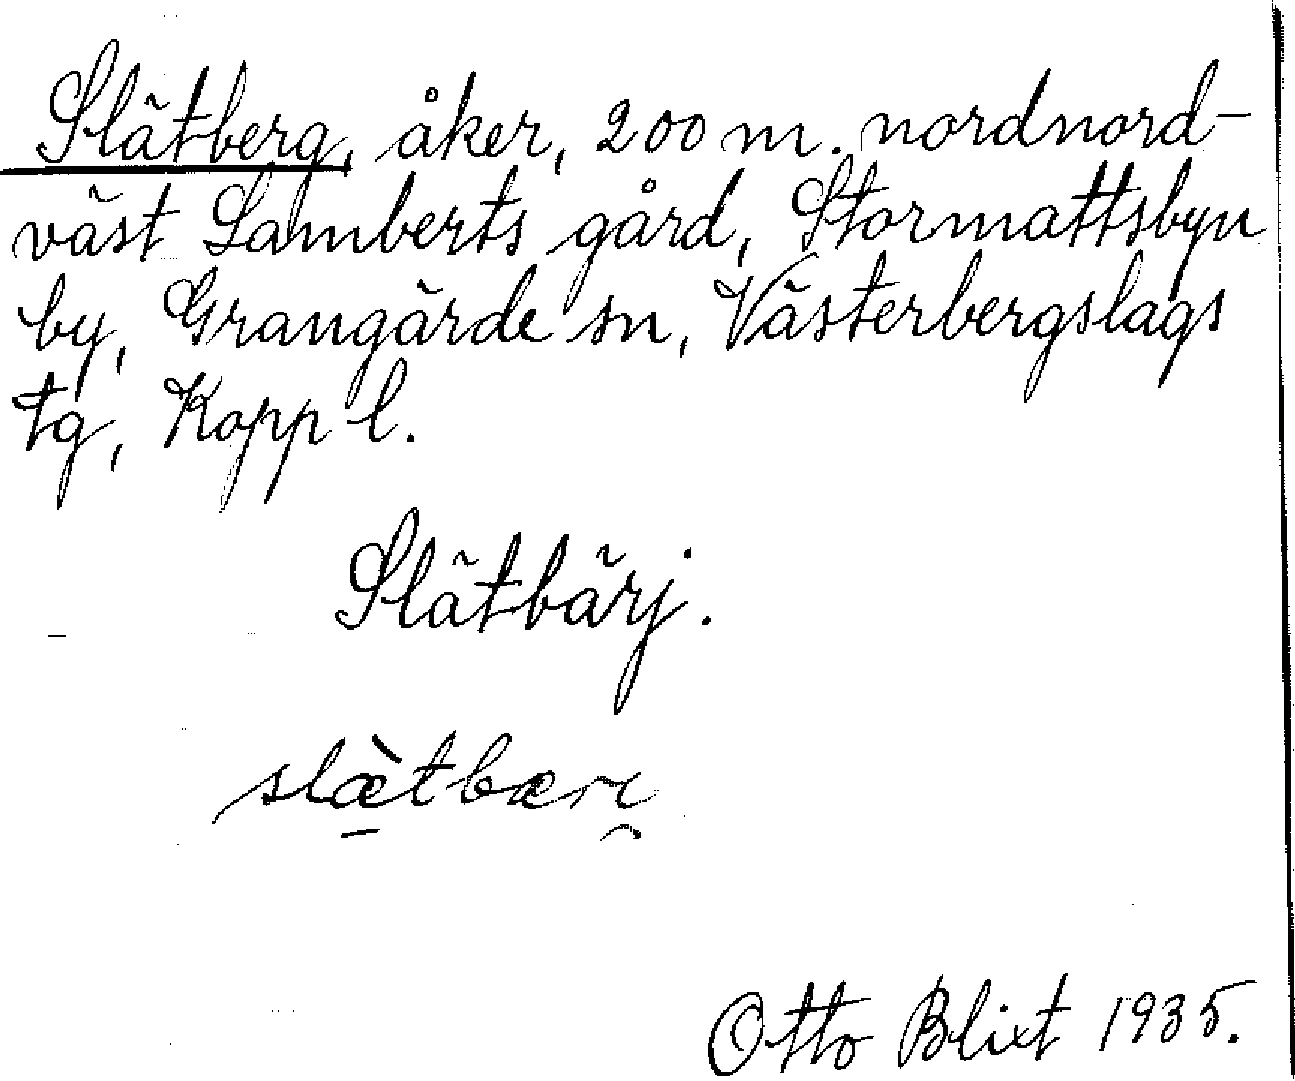 Slätberg, åker, 200 m. nordnord-
väst Lamberts gård, Stormattsbyn
by, Grangärde sn, Västerbergslags
tg, Kopp l.
Slätbärj.
slæ̠̀tbæri̯
Otto Blixt 1935.